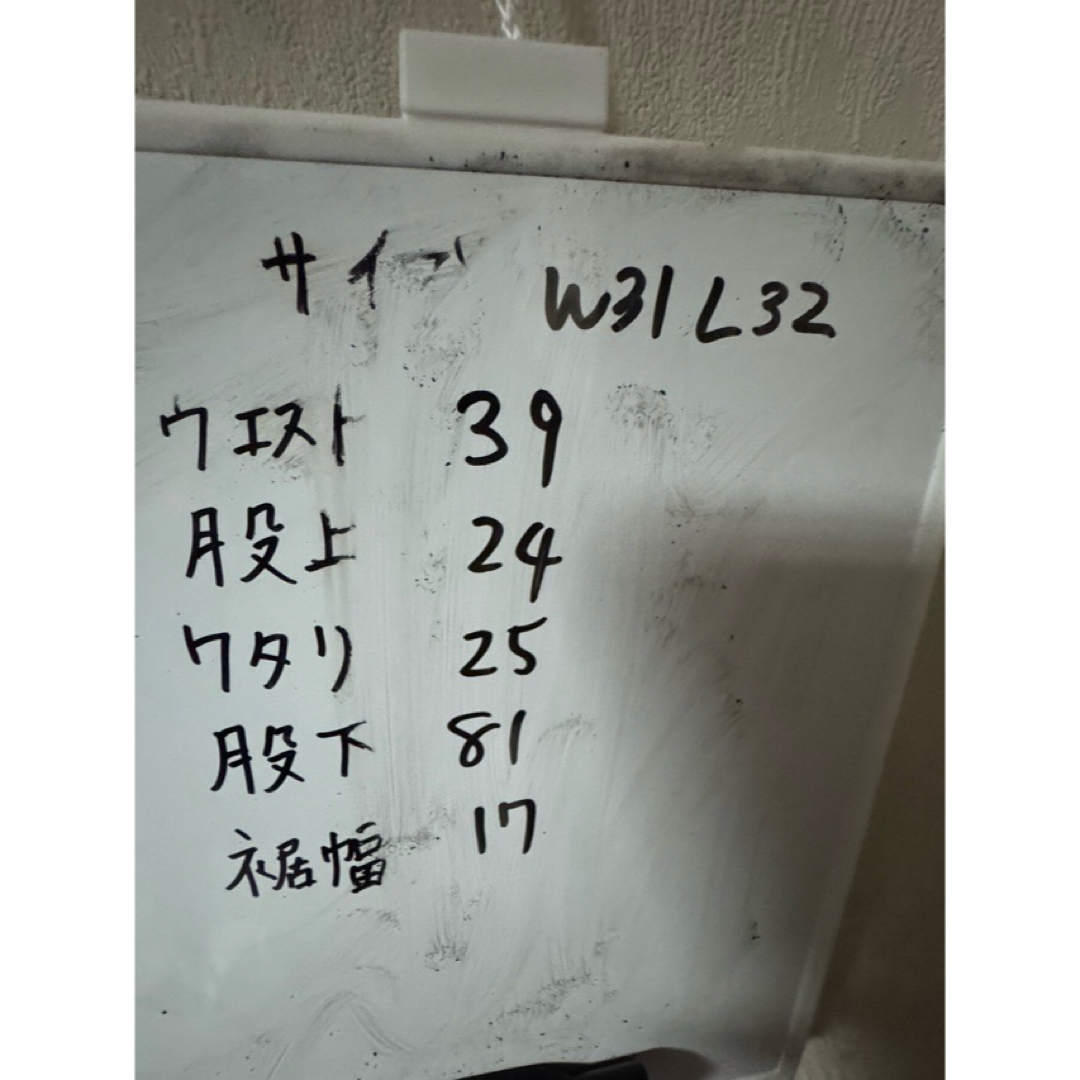 サイズ W31 L32
ウエスト 39
股上 24
ワタリ 25
股下 81
裾幅 17